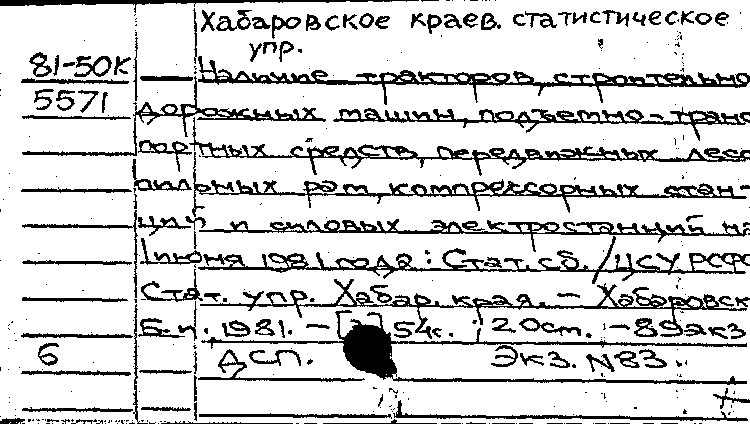 Хабаровское краев. статистическое
упр.
81-50К Наличие тракторов, строительно
5571 дорожных машин, подъемно-транс
портных средств, передвижных лесо
пильных рам, компрессорных стан-
ций и силовых электростанций на
1 июня 1981 года: Стат. сб. / ЦСУ РСФС
Стат. упр. Хабар. края. – Хабаровск
Б.и., 1981. – 54с.; 20см. – 89экз
6 ДСП. Экз. N83.